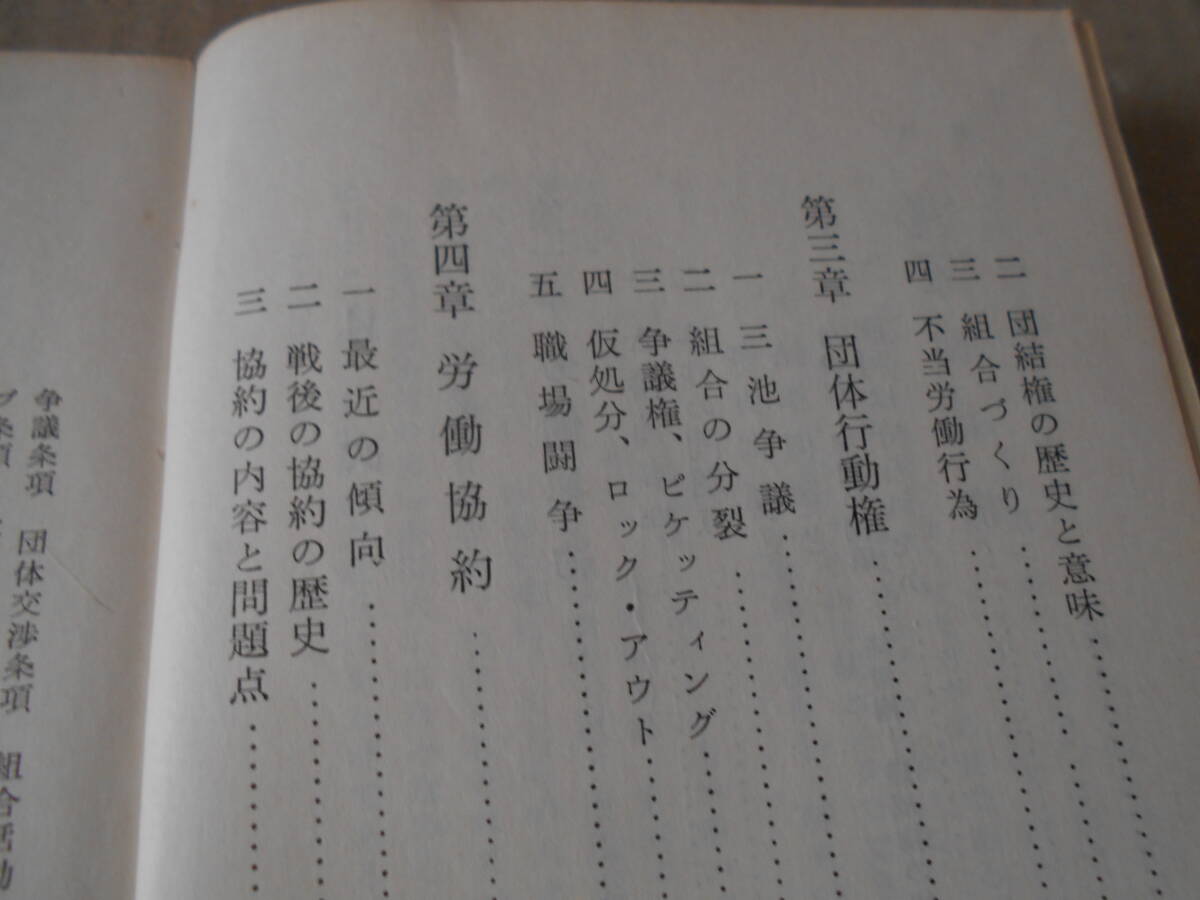 二 団結権の歴史と意味
三 組合づくり
四 不当労働行為
第三章 団体行動権
一 三池争議
二 組合の分裂
三 争議権、ピケッティング
四 仮処分、ロック・アウト
五 職場闘争
第四章 労働協約
一 最近の傾向
二 戦後の協約の歴史
三 協約の内容と問題点
争議条項 団体交渉条項 組合活動
プ条項